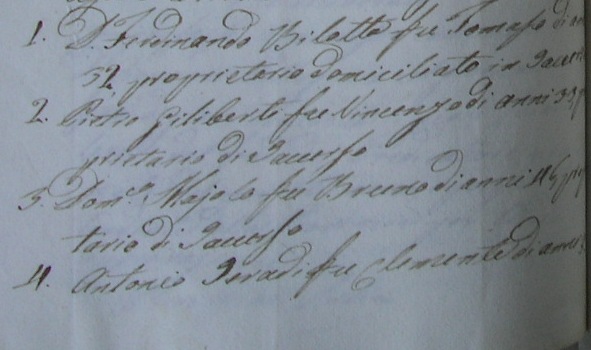 1. D. Ferdinando Bilotta fu Tomaso di
52. proprietario domiciliato in
2. Pietro Giliberto fu Vincenzo di anni 33 p
prietario di Jacurso
3. Dom.co Majolo fu Bruno di anni 46 pro
tario di Jacurso
4. Antonio fu Clemente di anni